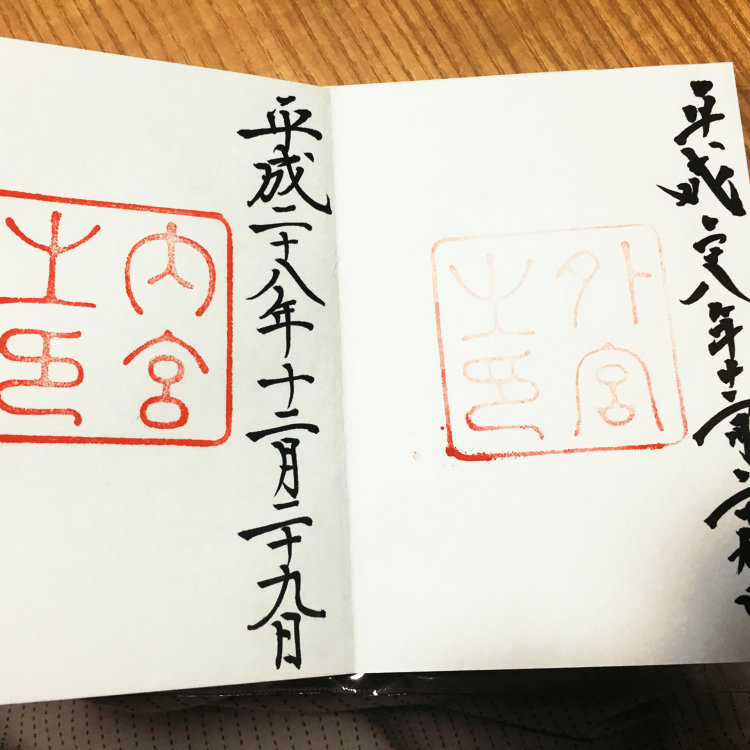 平成二十八年十二月二十九日
外宮
之印
平成二十八年十二月二十九日
内宮
之印